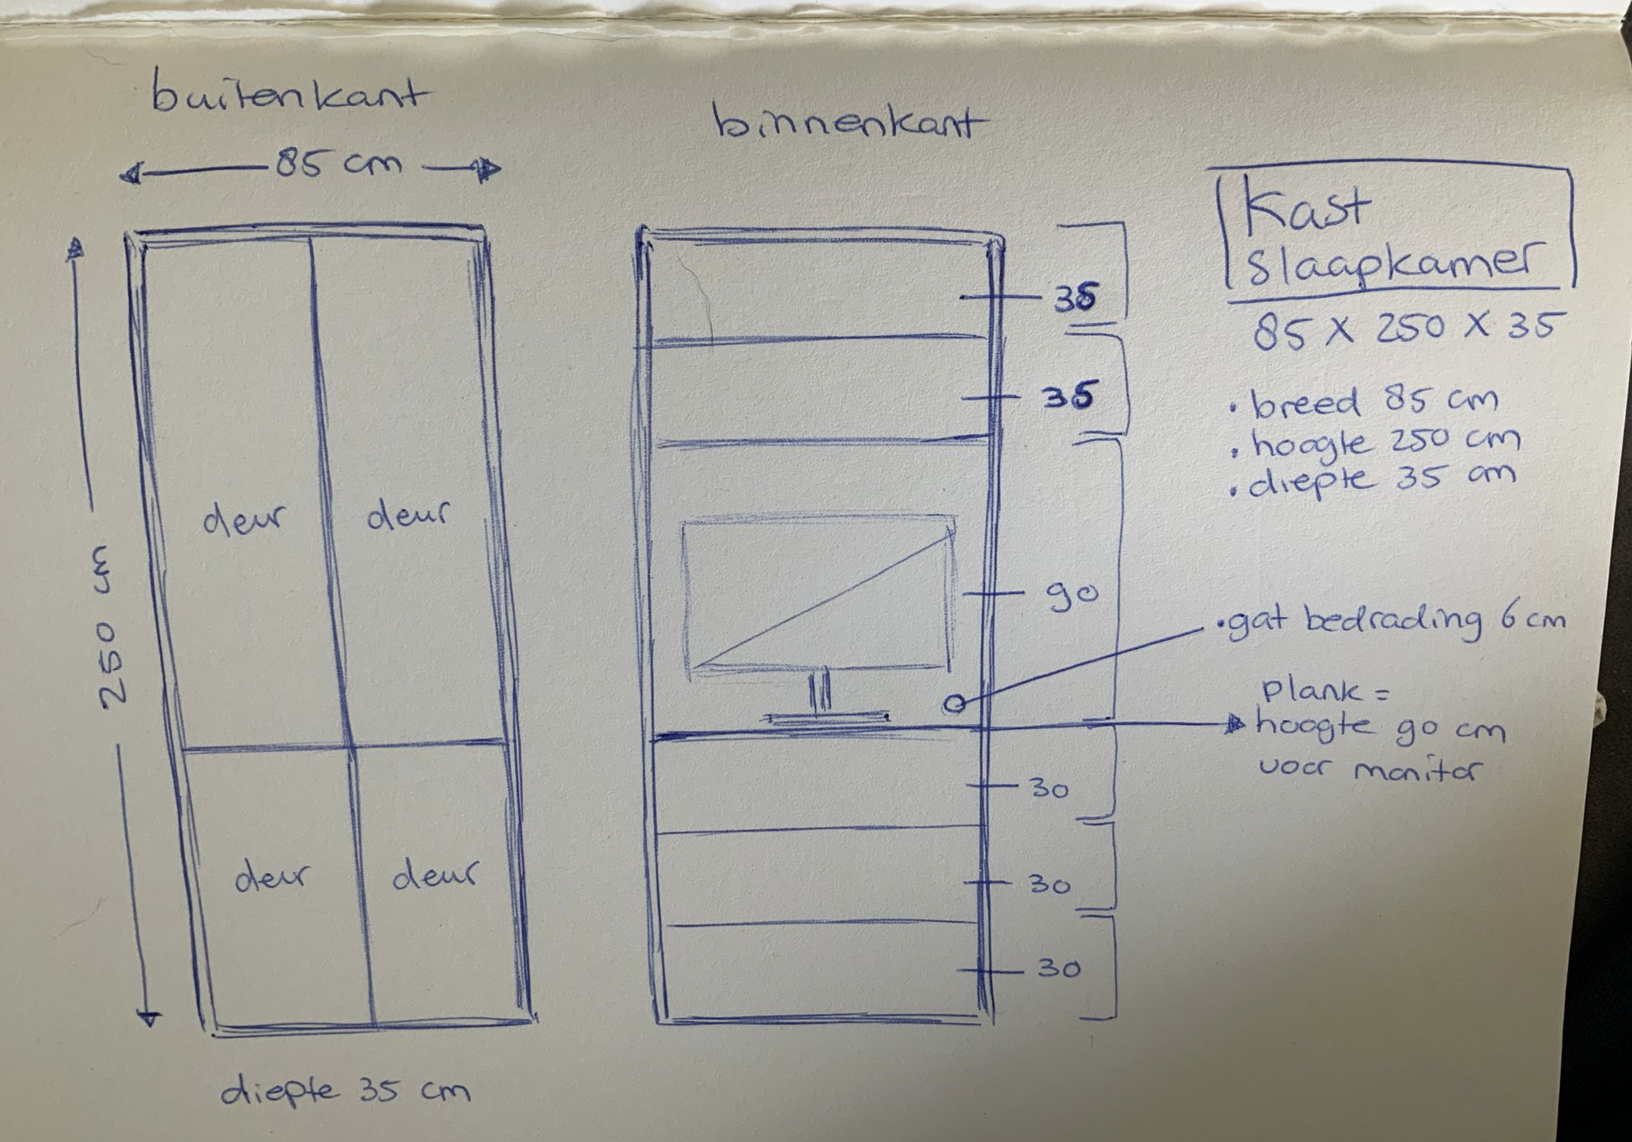 buitenkant
85 cm
250 cm
deur
deur
deur
deur
diepte 35 cm
binnenkant
35
35
90
30
30
30
Kast
slaapkamer
85 X 250 X 35
• breed 85 cm
• hoogte 250 cm
• diepte 35 cm
• gat bedrading 6 cm
plank =
hoogte 90 cm
voor monitor